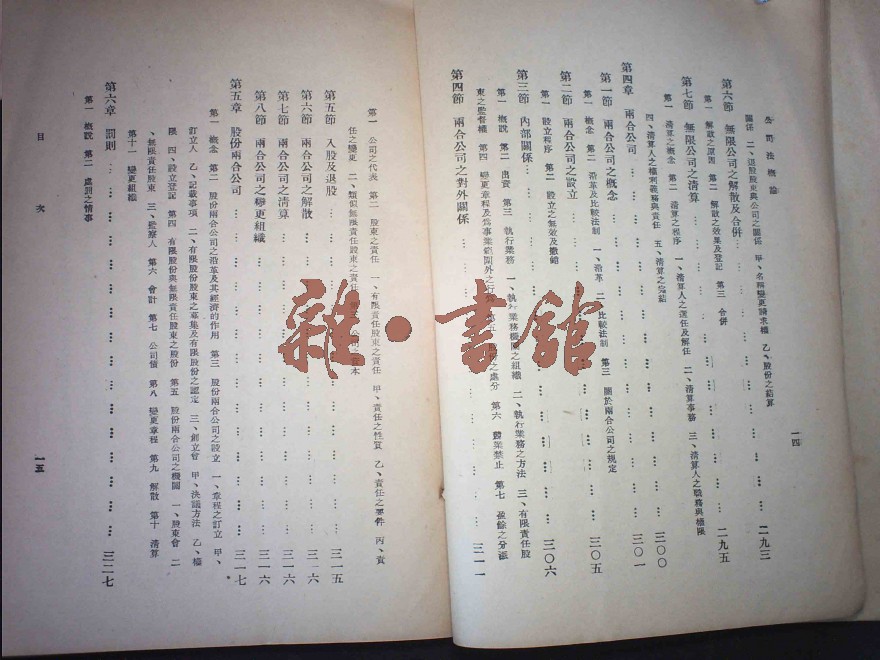 公司法概論
一四
關係 二、退股股東與公司之關係 甲、名稱變更請求權 乙、股份之結算
第六節 無限公司之解散及合併………二九三
第一 解散之原因 第二 解散之效果及登記 第三 合併
第七節 無限公司之清算………二九五
第一 清算之概念 第二 清算之程序 一、清算人之選任及解任 二、清算事務 三、清算人之職務與權限
四、清算人之權利義務與責任 五、清算之完結
第四章 兩合公司………三〇〇
第一節 兩合公司之概念………三〇一
第一 概念 第二 沿革及比較法制 一、沿革 二、比較法制 第三 關於兩合公司之規定
第二節 兩合公司之設立………三〇五
第一 設立程序 第二 設立之無效及撤銷
第三節 內部關係………三〇六
第一 概說 第二 出資 第三 執行業務 一、執行業務機關之組織 二、執行業務之方法 三、有限責任股
東之監督權 第四 變更章程及為事業範圍外之行為 第五 之處分 第六 競業禁止 第七 盈餘之分派
第四節 兩合公司之對外關係………三一一
第一 公司之代表 第二 股東之責任 一、有限責任股東之責任 甲、責任之性質 乙、責任之要件 丙、責
任之變更 二、類似無限責任股東之責任 第三 公司之資本
第五節 入股及退股………三一五
第六節 兩合公司之解散………三一六
第七節 兩合公司之清算………三一六
第八節 兩合公司之變更組織………三一六
第五章 股份兩合公司………三一七
第一 概念 第二 股份兩合公司之沿革及其經濟的作用 第三 股份兩合公司之設立 一、章程之訂立 甲、
訂立人 乙、記載事項 二、有限股份股東之募集及有限股份之認定 三、創立會 甲、決議方法 乙、權
限 四、設立登記 第四 有限股份與無限責任股東之股份 第五 股份兩合公司之機關 一、股東會 二
、無限責任股東 三、監察人 第六 會計 第七 公司債 第八 變更章程 第九 解散 第十 清算
第十一 變更組織
第六章 罰則………三二七
第一 概說 第二 處罰之情事
目次
一五
雜·書館